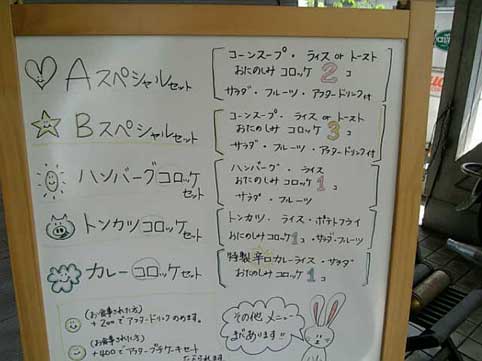 Aスペシャルセット
コーンスープ・ライス or トースト
おたのしみコロッケ2コ
サラダ・フルーツ・アフタードリンク付
Bスペシャルセット
コーンスープ・ライス or トースト
おたのしみコロッケ3コ
サラダ・フルーツ・アフタードリンク付
ハンバーグコロッケ
セット
ハンバーグ・ライス
おたのしみコロッケ1コ
サラダ・フルーツ
トンカツコロッケ
セット
トンカツ・ライス・ポテトフライ
おたのしみコロッケ1コ・サラダ・フルーツ
カレーコロッケセット
特製辛口カレーライス・サラダ
おたのしみコロッケ1コ
(お食事された方)
+200でアフタードリンクのめます。
(お食事された方)
+400でアフターケーキセット
その他メニュー
まだあります!!